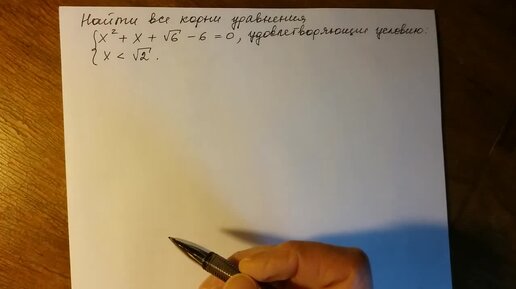 Найти все корни уравнения
{x² + x + √6 - 6 = 0, удовлетворяющие условию:
x < √2.